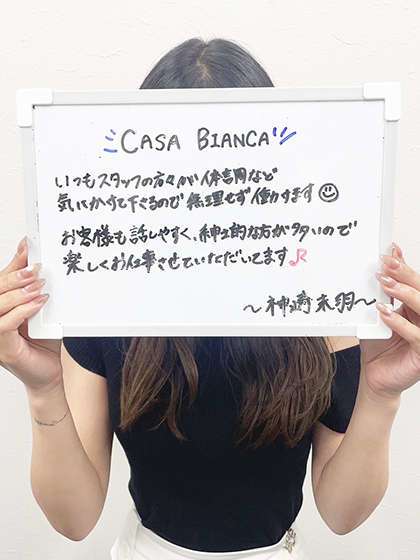 CASA BIANCA
いつもスタッフの方々が体調など
気にかけて下さるので無理せず働けます☺
お客様も話しやすく、紳士的な方が多いので
楽しくお仕事させていただいてます♪
〜神崎未羽〜